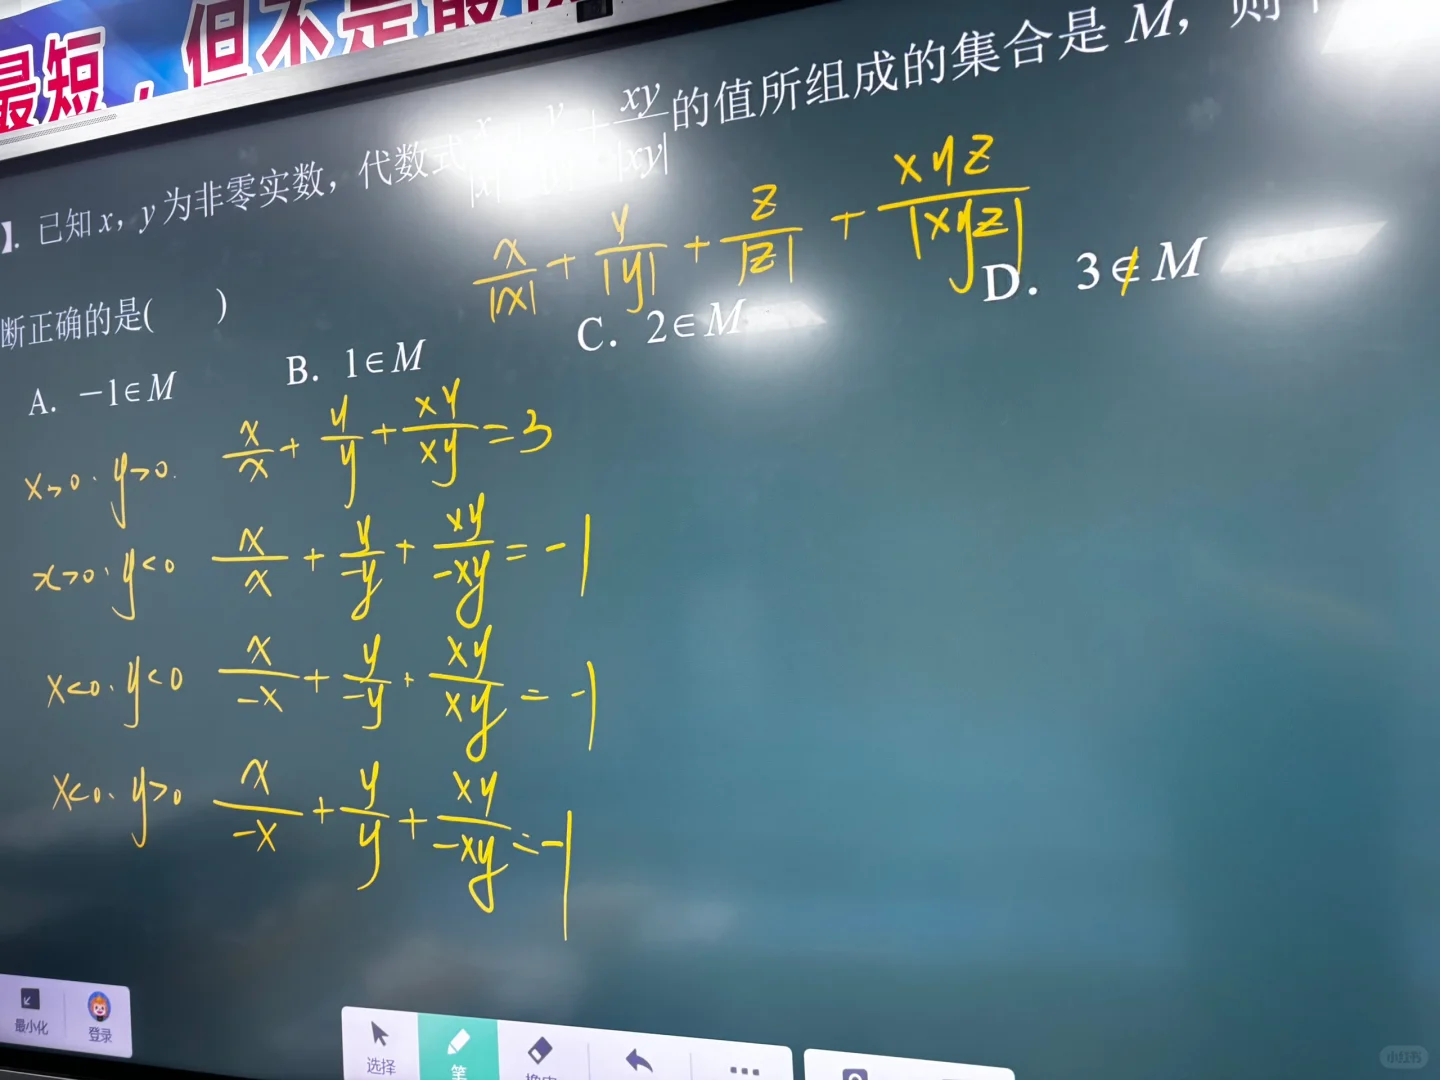 最短，但不是最
】. 已知 x，y 为非零实数，代数式 x/|x| + y/|y| + xy/|xy| 的值所组成的集合是 M，则
x/|x| + y/|y| + z/|z| + xyz/|xyz|
断正确的是(　　)
A. －1∈M　B. 1∈M　C. 2∈M　D. 3∉M
x>0. y>0. x/x + y/y + xy/xy = 3
x>0. y<0 x/x + y/-y + xy/-xy = -1
x<0. y<0 x/-x + y/-y + xy/xy = -1
x<0. y>0 x/-x + y/y + xy/-xy = -1
最小化 登录 选择 笔
小红书